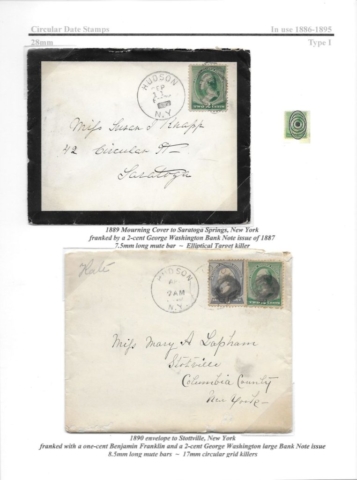 Circular Date Stamps In use 1886-1895
28mm Type I
HUDSON
N.Y.
Miss Susan J Knapp
42 Circular St
Saratoga
1889 Mourning Cover to Saratoga Springs, New York
franked by a 2-cent George Washington Bank Note issue of 1887
7.5mm long mute bar ~ Elliptical Target killer
Kate
HUDSON
AM
N.Y.
Miss Mary A Lapham
Stotville
Columbia County
New York
1890 envelope to Stottville, New York
franked with a one-cent Benjamin Franklin and a 2-cent George Washington large Bank Note issue
8.5mm long mute bars ~ 17mm circular grid killers